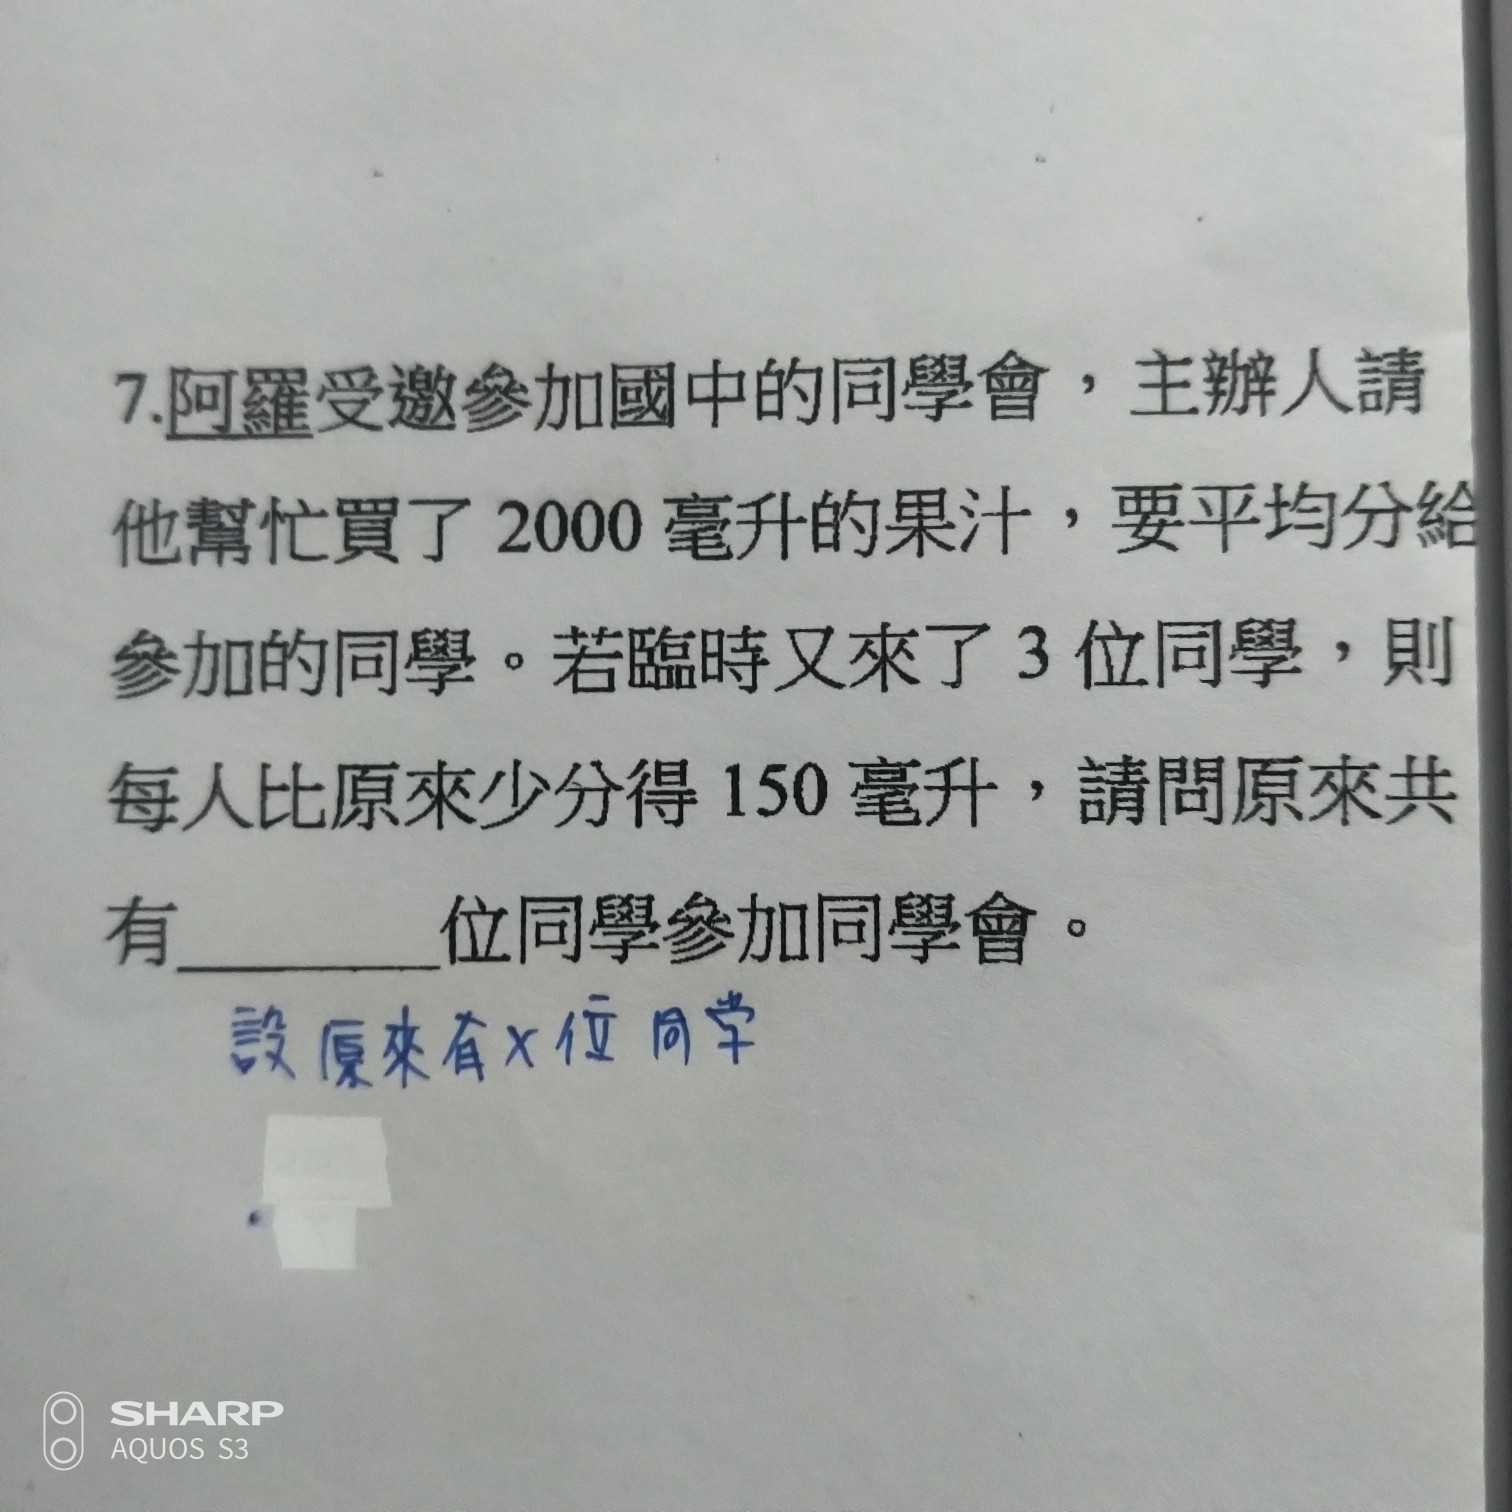 7.阿羅受邀參加國中的同學會，主辦人請
他幫忙買了 2000 毫升的果汁，要平均分給
參加的同學。若臨時又來了 3 位同學，則
每人比原來少分得 150 毫升，請問原來共
有_______位同學參加同學會。
設原來有x位同学
SHARP
AQUOS S3